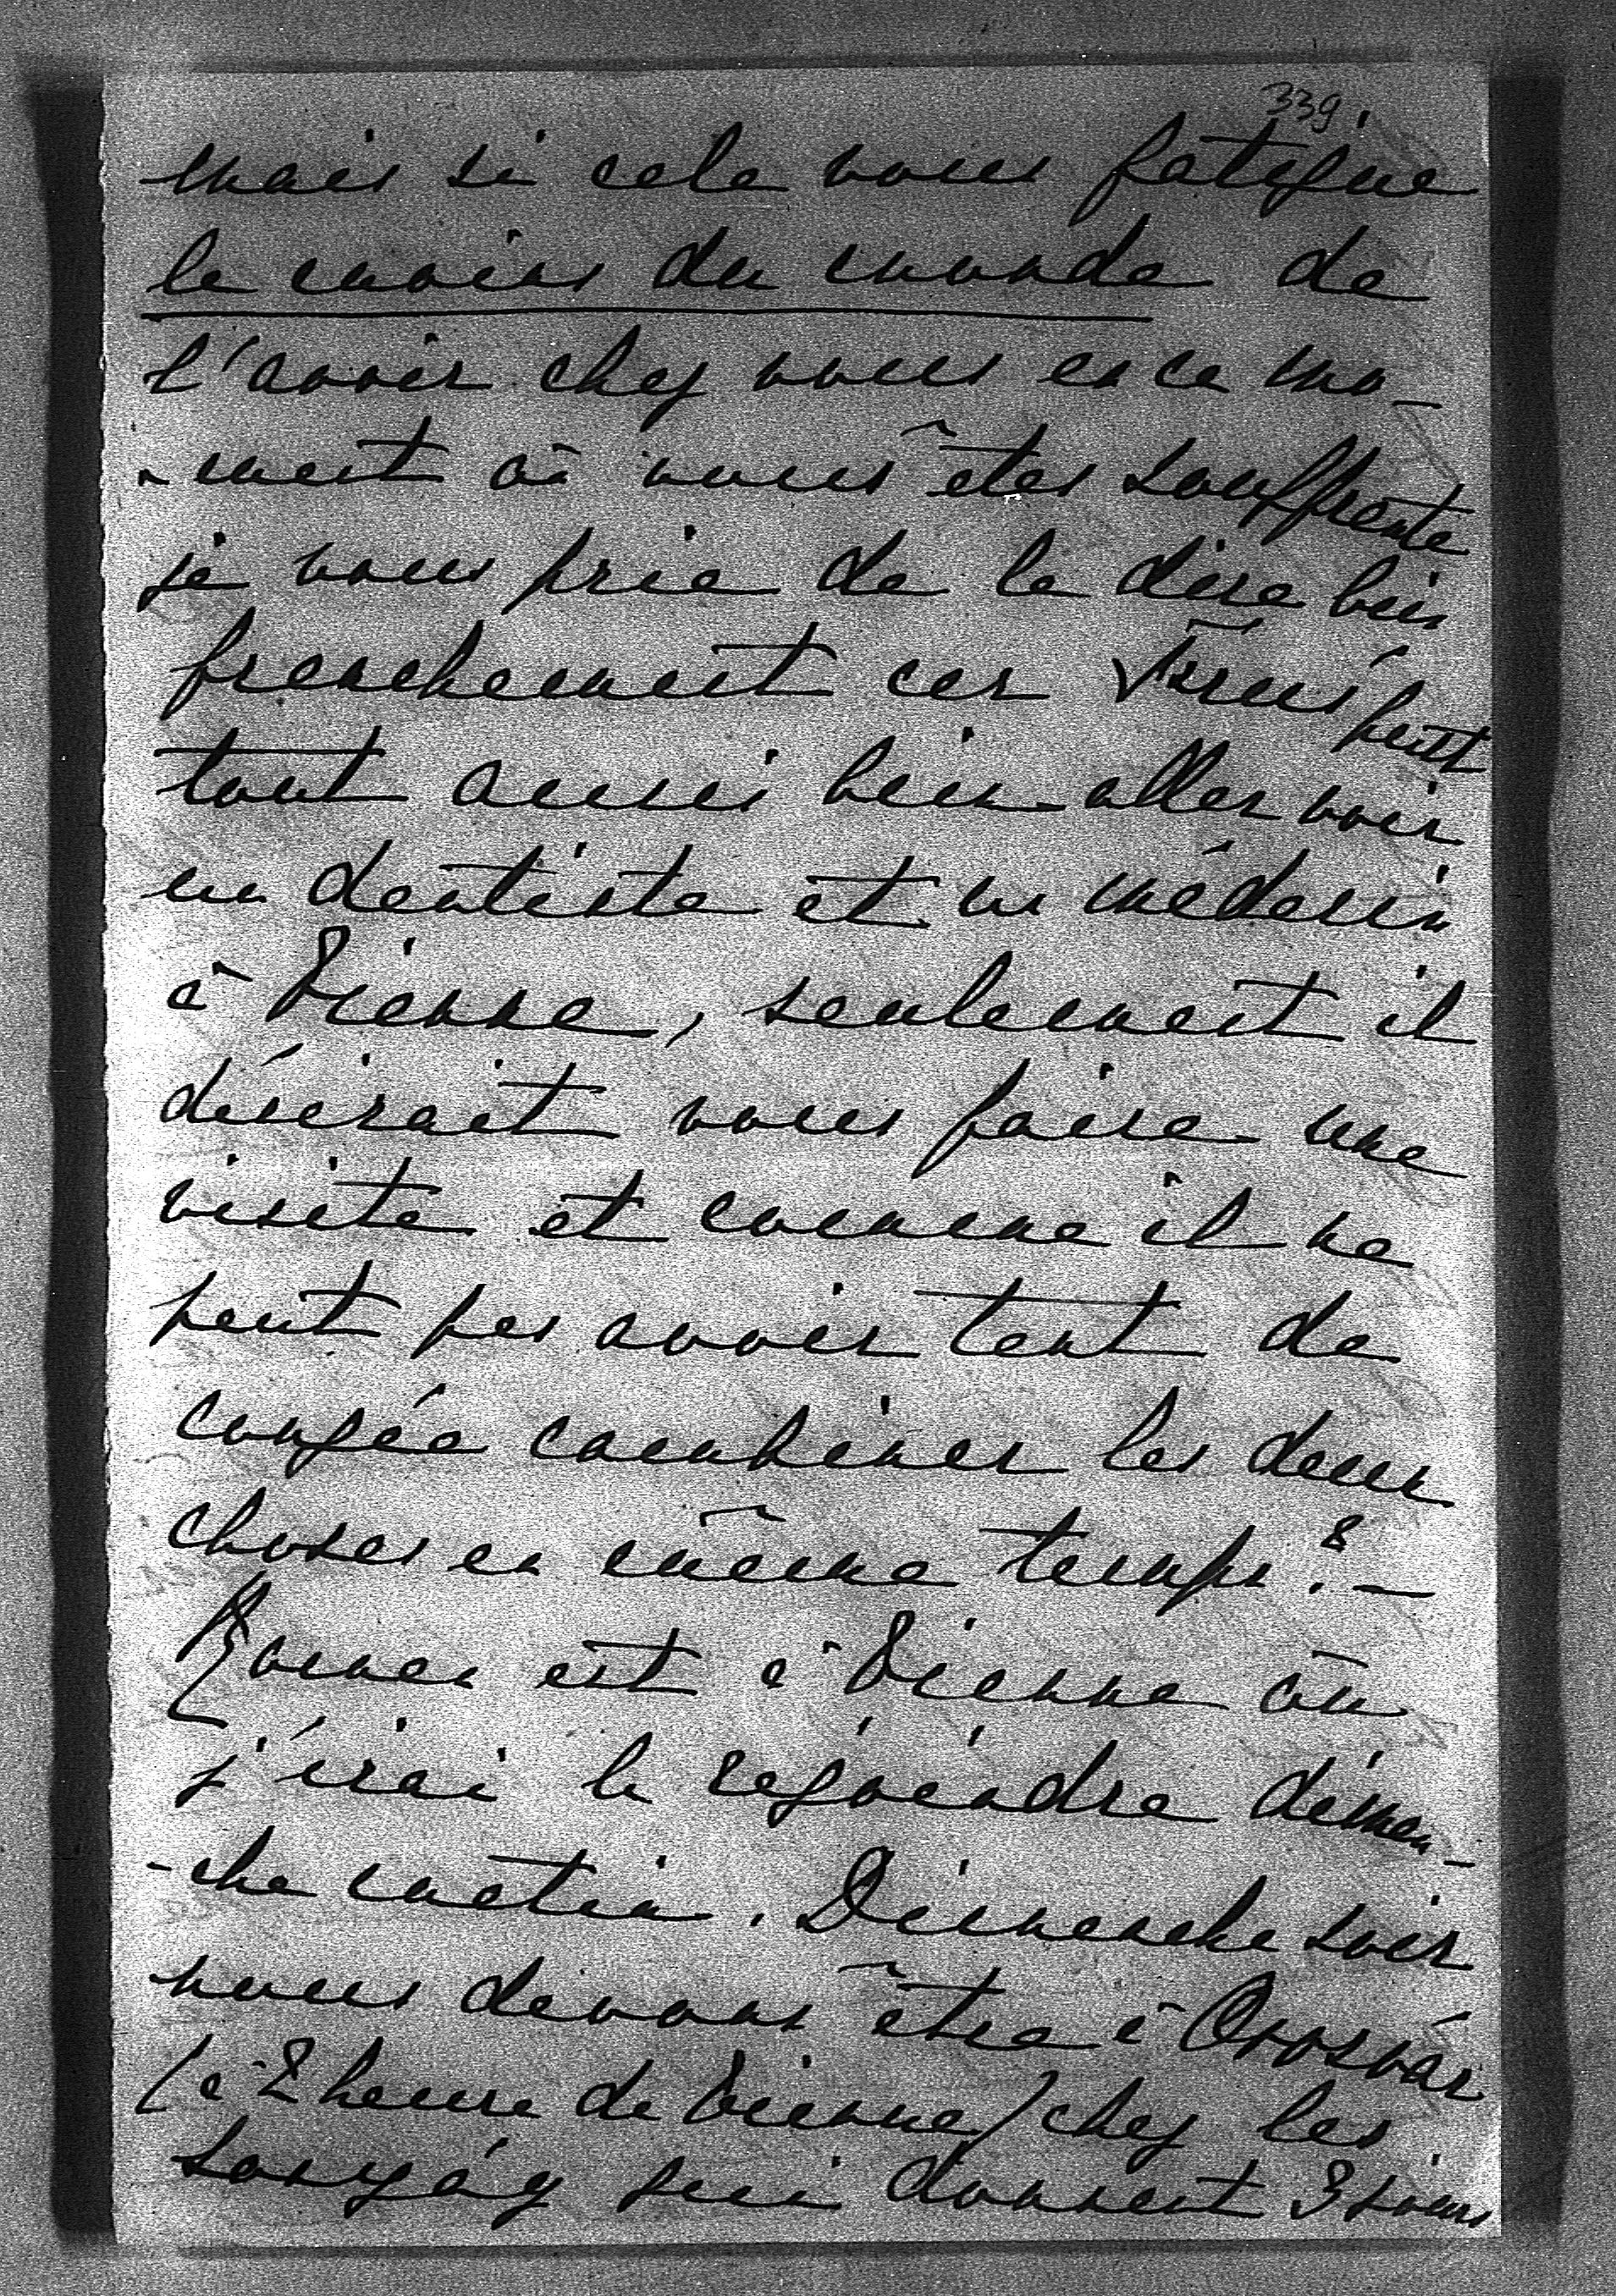 339
mais si cela vous fatigue
le moins du monde de
l'avoir chez vous en ce mo-
-ment où vous êtes souffrante
je vous prie de le dire bien
franchement car peut
tout aussi bien aller voir
un dentiste et un médecin
à Vienne, seulement il
désirait vous faire une
visite et comme il ne
peut pas avoir tant de
congée combiner les deux
choses en même temps? -
est à Vienne où
j'irai le rejoindre diman-
-che matin. Dimanche soir
nous devons être à Oroszvár
(à 2 heure de Vienne) chez les
Lonyáy qui donnent 3 jours